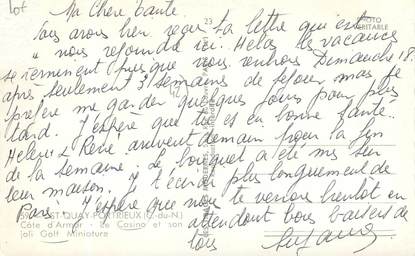 Ma Chère Tante.
Nous avons bien reçu ta lettre qui est
nous rejoindre ici. Hélas les vacances
se terminent puisque nous rentrons Dimanche 18.
après seulement 3 semaines de séjour mais je
préfère me garder quelques jours pour plus
tard. J'espère que tu es en bonne santé.
Hélène & René arrivent demain pour la fin
de la semaine. Le bouquet a été mis sur
leur maison. Je t'écrirai plus longuement de
Paris. J'espère que nous te verrons bientôt en
attendant bons baisers de
tous
23
PHOTO
VÉRITABLE
ST-QUAY-PORTRIEUX (C.-du-N.)
Côte d'Armor - Le Casino et son
joli Golf Miniature